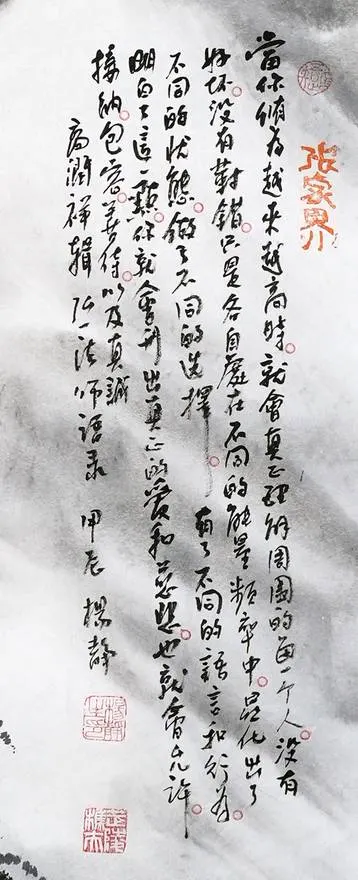 张家界
當你維度越來越高時。就會真正理解周圍的每一个人。没有
好坏。没有對錯。只是各自處在不同的能量頻率中。显化出了
不同的状態。做了不同的选擇。有了不同的語言和行為。
明白了這一點。你就會升出真正的愛和慈悲。也就會允許
接納。包容。善待以及真誠
高潤祥輯 弘一法师語录 甲辰 楊靜